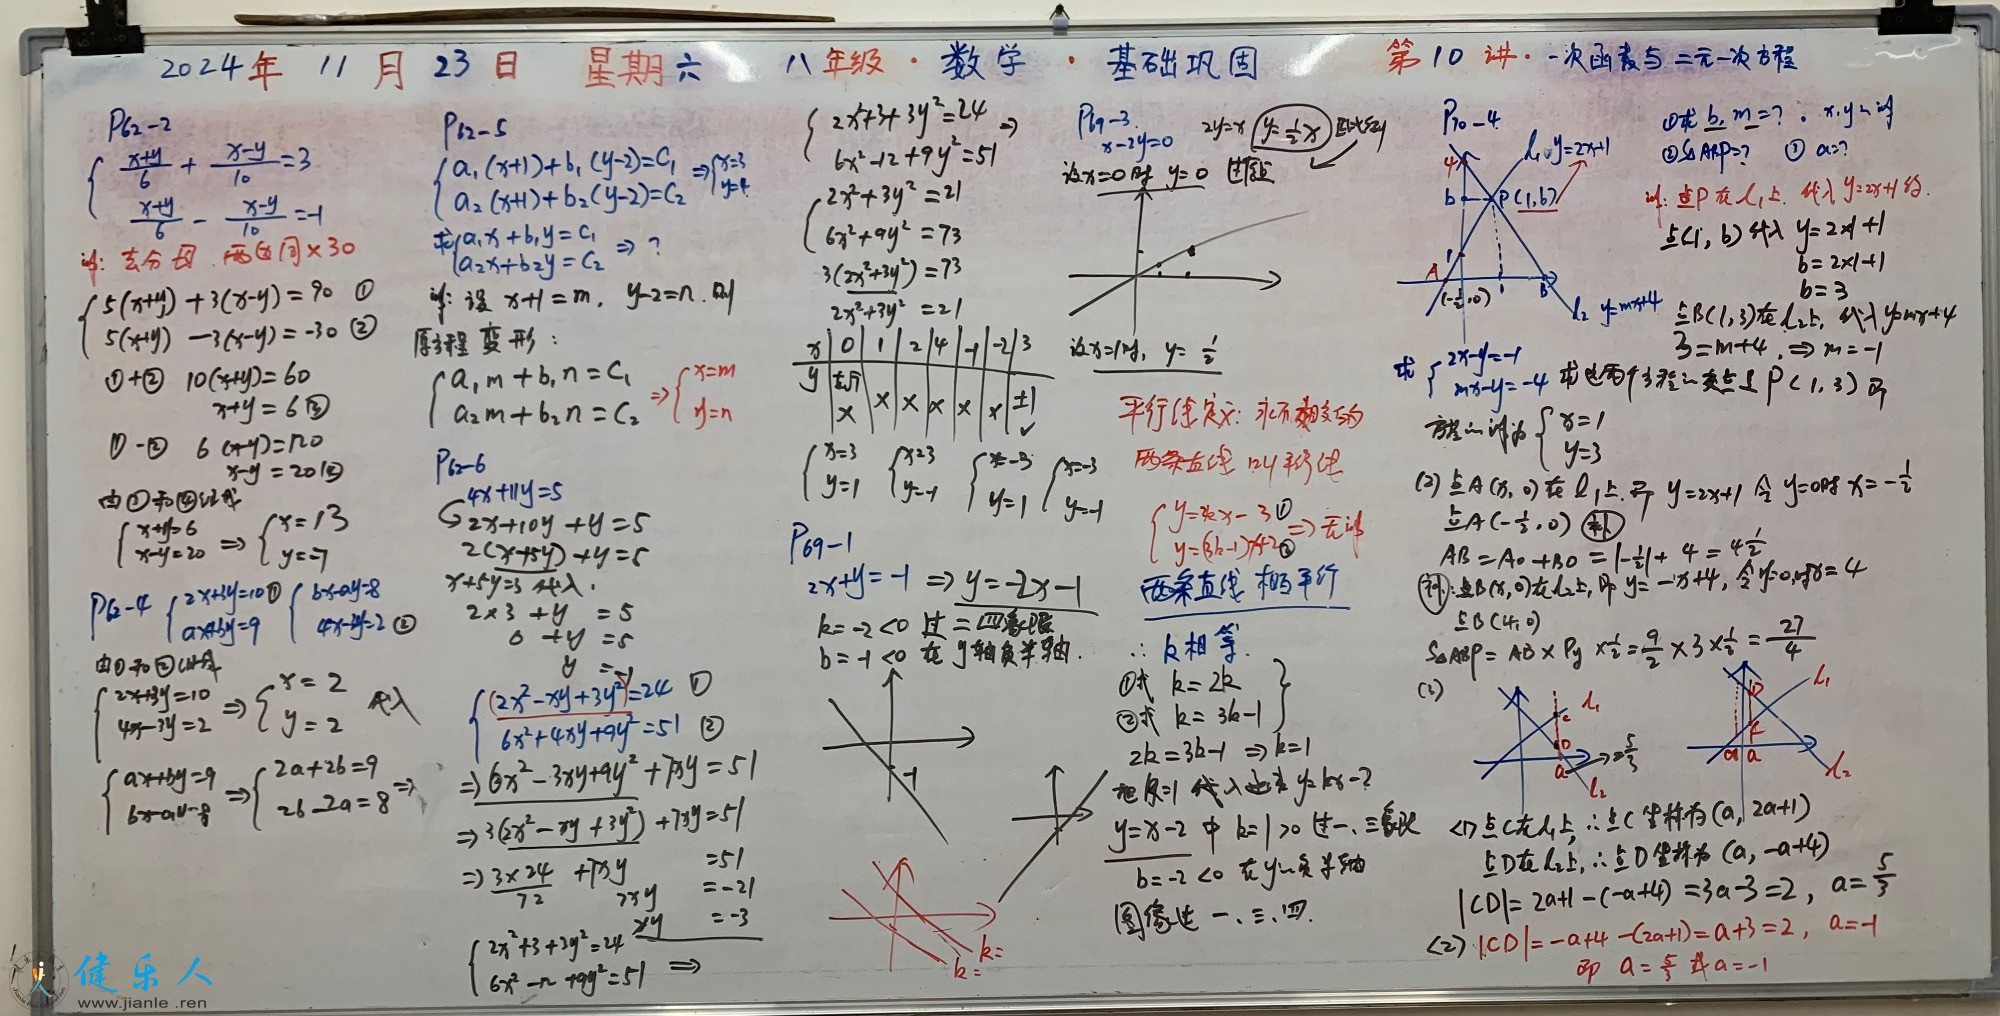 2024年 11月 23日 星期六 八年级·数学·基础巩固 第10讲·一次函数与二元一次方程
P62-2
(x+y)/6 + (x-y)/10 = 3
(x+y)/6 - (x-y)/10 = -1
去分母 ×30
5(x+y)+3(x-y)=90 ①
5(x+y)-3(x-y)=-30 ②
①+② 10(x+y)=60
x+y=6 ③
①-② 6(x-y)=120
x-y=20
x+y=6
x-y=20 ⇒ x=13
y=-7
P62-4 2x+3y=10 ① bx-ay=8
ax+by=9 4x-3y=2 ②
2x+3y=10
4x-3y=2 ⇒ x=2
y=2 代入
ax+by=9
bx-ay=8 ⇒ 2a+2b=9
2b-2a=8 ⇒
P62-5
a₁(x+1)+b₁(y-2)=C₁
a₂(x+1)+b₂(y-2)=C₂ ⇒ x=3
y=4
求 a₁x+b₁y=C₁
a₂x+b₂y=C₂ ⇒ ?
设 x+1=m, y-2=n. 则
原方程变形:
a₁m+b₁n=C₁
a₂m+b₂n=C₂ ⇒ x=m
y=n
P62-6
4x+11y=5
2x+10y+y=5
2(x+5y)+y=5
x+5y=3 代入.
2×3+y=5
6+y=5
y=-1
2x²-xy+3y²=24 ①
6x²+4xy+9y²=51 ②
⇒ 6x²-3xy+9y²+7xy=51
⇒ 3(2x²-xy+3y²)+7xy=51
⇒ 3×24+7xy =51
72 7xy =-21
xy =-3
2x²+3+3y²=24
6x²-12+9y²=51 ⇒
2x²+3+3y²=24 ⇒
6x²-12+9y²=51
2x²+3y²=21
6x²+9y²=73
3(2x²+3y²)=73
2x²+3y²=21
x 0 1 2 4 -1 -2 3
y × × × × × × ±1 ✓
x=3
y=1
x=3
y=-1
x=-3
y=1
x=-3
y=-1
P69-1
2x+y=-1 ⇒ y=-2x-1
k=-2<0 过二四象限
b=-1<0 在y轴负半轴.
-1
k=
k=
P69-3
x-2y=0 2y=x y=½x
设x=0时 y=0
设x=1时, y=½
平行线定义: 永不相交的
两条直线 叫平行线
⇒无解
两条直线相互平行
∴ k相等.
①式 k=2k
②式 k=3k-1
2k=3k-1 ⇒ k=1
把k=1代入
y=x-2 中 k=1>0 过一、三象限
b=-2<0 在y负半轴
图像过一、三、四.
P70-4
l₁ y=2x+1
4
b P(1,b)
1
A (-½,0) 1 B
l₂ y=mx+4
①求b, m=?
②S△ABP=? ③ a=?
点P在l₁上. 代入y=2x+1
点(1,b)代入 y=2x+1
b=2×1+1
b=3
点B(1,3)在l₂上, 代入y=mx+4
3=m+4, ⇒ m=-1
求 2x-y=-1
mx-y=-4 P(1,3) 即
x=1
y=3
(2) 点A(x,0)在l₁上, 即 y=2x+1 令y=0时 x=-½
点A(-½,0) 补
AB=AO+BO=|-½|+4=4½
补: 点B(x,0)在l₂上, 即 y=-x+4, 令y=0,时x=4
点B(4,0)
S△ABP=AB×Py×½=9/2×3×½=27/4
(3)
l₁
C
D
a
l₂
5/3
l₁
D
a a
l₂
<1> 点C在l₁上, ∴点C坐标为(a, 2a+1)
点D在l₂上, ∴点D坐标为(a, -a+4)
|CD|=2a+1-(-a+4)=3a-3=2, a=5/3
<2> |CD|=-a+4-(2a+1)=a+3=2, a=-1
即 a=5/3 或 a=-1
健乐人
www.jianle.ren